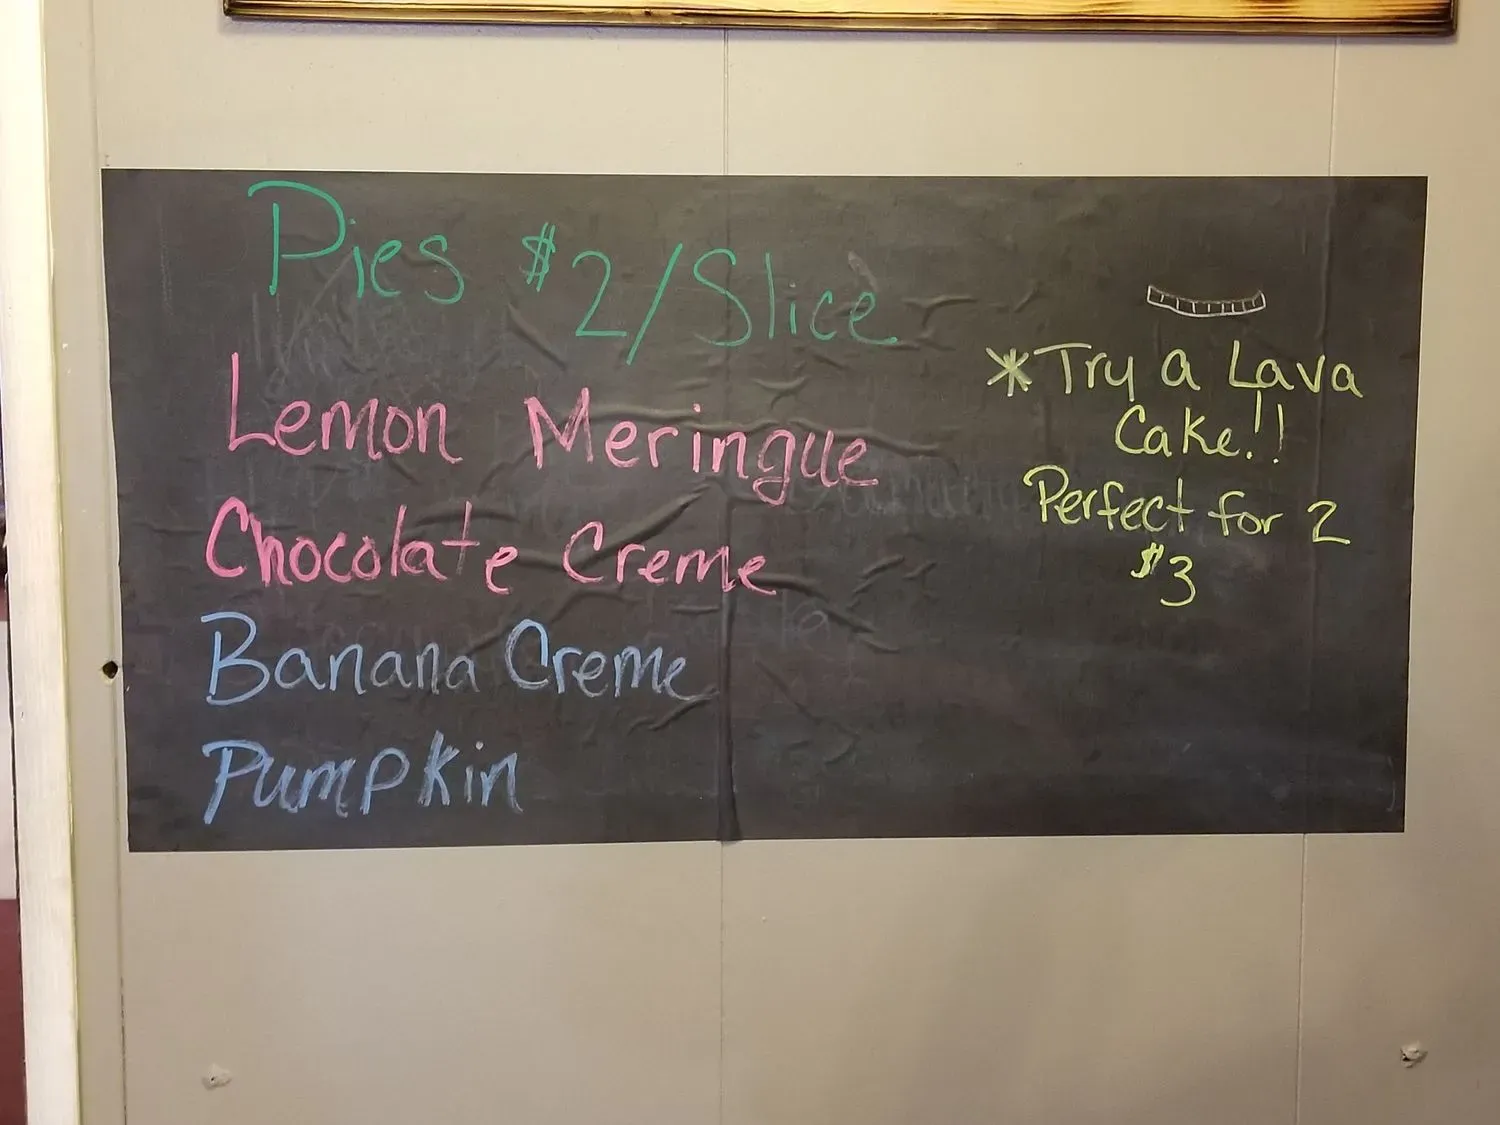 Pies $2/Slice
Lemon Meringue
Chocolate Creme
Banana Creme
Pumpkin
*Try a Lava
Cake!!
Perfect for 2
$3